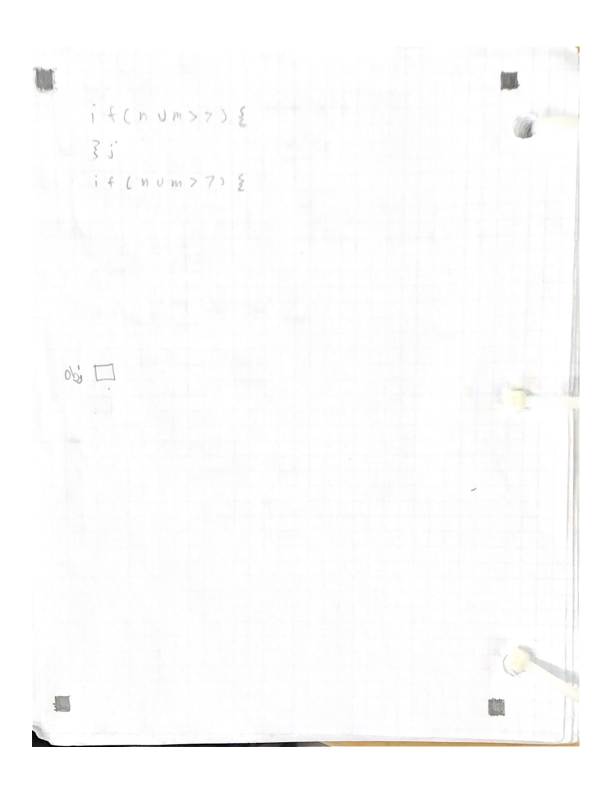 if(num>7){
}j
if(num>7){
Obj